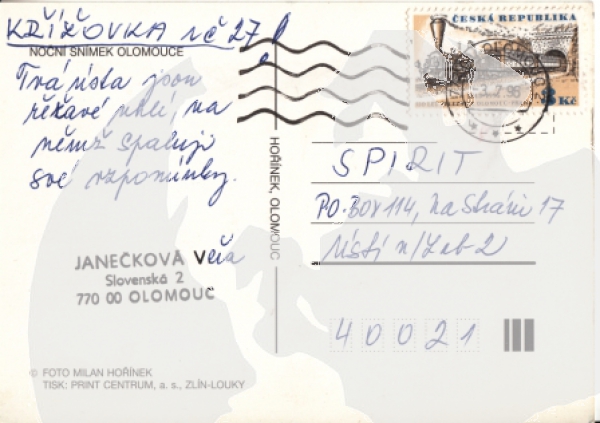 KŘÍŽOVKA č 27
NOČNÍ SNÍMEK OLOMOUCE
Tvá ústa jsou
řěkavé uhlí, na
němž spaluji
své vzpomínky.
JANEČKOVÁ Věra
Slovenská 2
770 00 OLOMOUC
© FOTO MILAN HOŘÍNEK
TISK: PRINT CENTRUM, a. s., ZLÍN-LOUKY
HOŘÍNEK, OLOMOUC
ČESKÁ REPUBLIKA
3 Kč
SPIRIT
PO.BOX 114, Na Stráni 17
Ústí n/Lab 2
40021